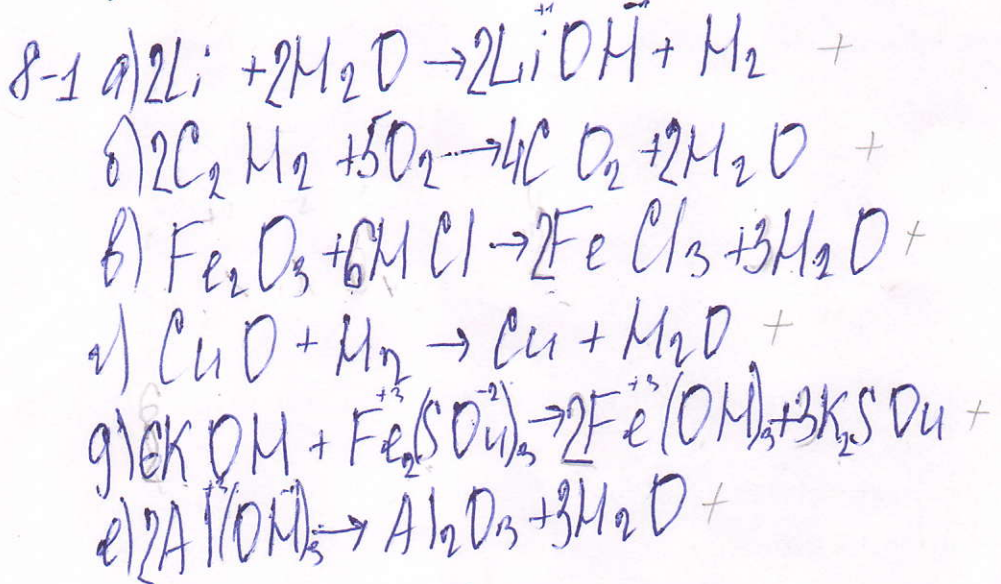 8-1 а) 2Li + 2H₂O → 2Li⁺¹OH⁻¹ + H₂ +
б) 2C₂H₂ + 5O₂ → 4CO₂ + 2H₂O +
в) Fe₂O₃ + 6HCl → 2FeCl₃ + 3H₂O +
г) CuO + H₂ → Cu + H₂O +
д) 6KOH + Fe₂⁺³(SO₄⁻²)₃ → 2Fe⁺³(OH)₃ + 3K₂SO₄ +
е) 2Al⁺³(OH⁻¹)₃ → Al₂O₃ + 3H₂O +